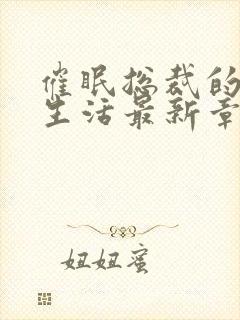 催眠总裁的
生活最新章
妞妞蜜